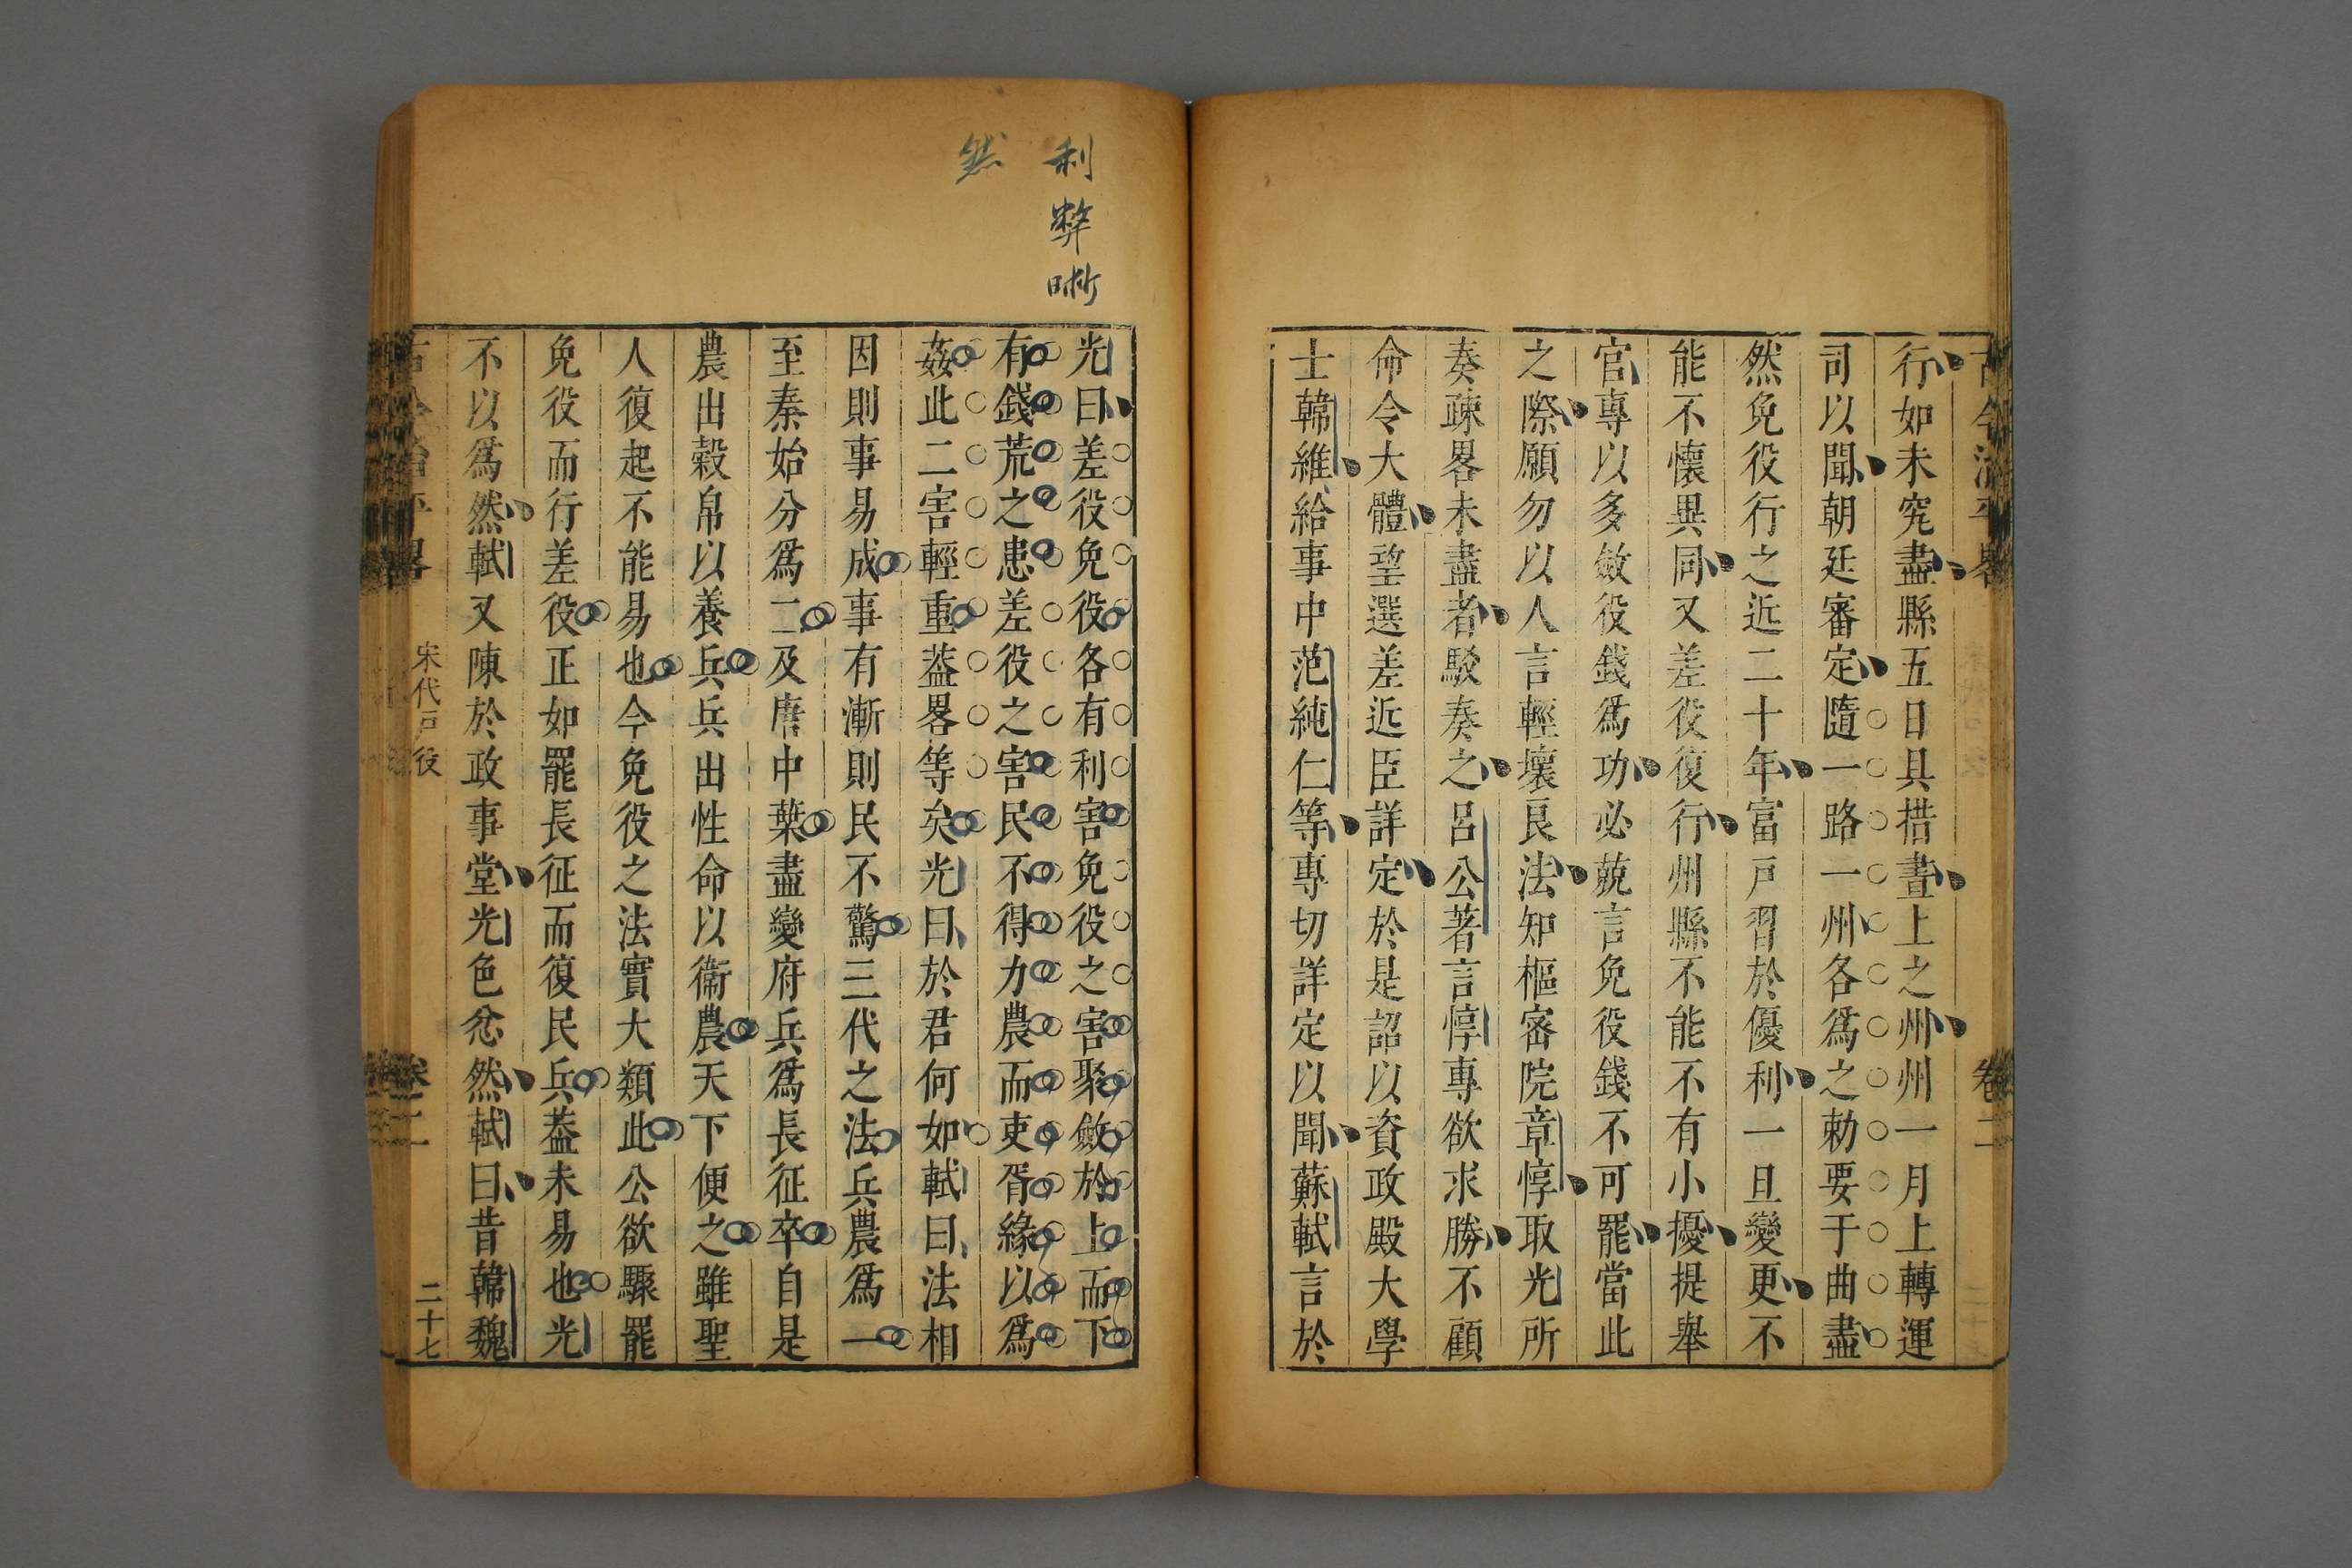 行如未究盡縣五日具措畫上之州州一月上轉運
司以聞朝廷審定隨一路一州各爲之勅要于曲盡
然免役行之近二十年富戸習於優利一旦變更不
能不懷異同又差役復行州縣不能不有小擾提舉
官專以多斂役錢爲功必競言免役錢不可罷當此
之際願勿以人言輕壞良法知樞密院章惇取光所
奏疎畧未盡者駁奏之呂公著言惇專欲求勝不顧
命令大體望選差近臣詳定於是詔以資政殿大學
士韓維給事中范純仁等專切詳定以聞蘇軾言於
利弊晣
然
光曰差役免役各有利害免役之害聚斂於上而下
有錢荒之患差役之害民不得力農而吏胥緣以爲
姦此二害輕重葢畧等矣光曰於君何如軾曰法相
因則事易成事有漸則民不驚三代之法兵農爲一
至秦始分爲二及唐中葉盡變府兵爲長征卒自是
農出穀帛以養兵兵出性命以衞農天下便之雖聖
人復起不能易也今免役之法實大類此公欲驟罷
免役而行差役正如罷長征而復民兵葢未易也光
不以爲然軾又陳於政事堂光色忿然軾曰昔韓魏
宋代戸役
卷二
二十七